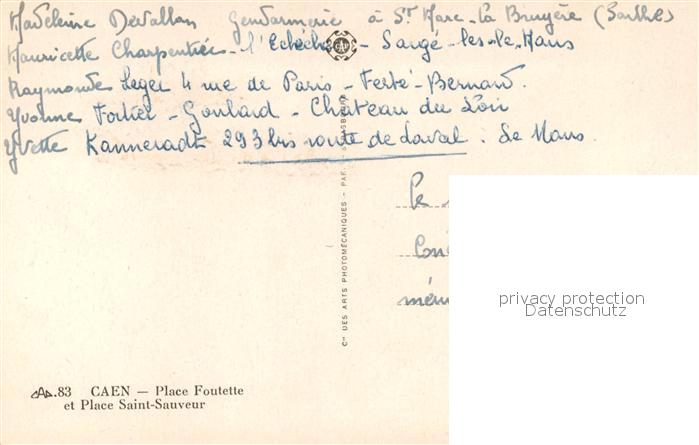 Madeleine Devallon Gendarmerie à St Marc-la Bruyère (Sarthe)
Mauricette Charpentier - l'Echéche - Sargé-les-le-Mans
Raymonde Leger 4 rue de Paris - Ferté-Bernard.
Yvonne Fortier - Goulard - Chateau du Loir
Yvette Kanneradt 293 bis route de Laval. Le Mans.
CAP
Cie DES ARTS PHOTOMÉCANIQUES - PARIS - STRASBOURG
privacy protection
Datenschutz
CAP.83 CAEN — Place Foutette
et Place Saint-Sauveur